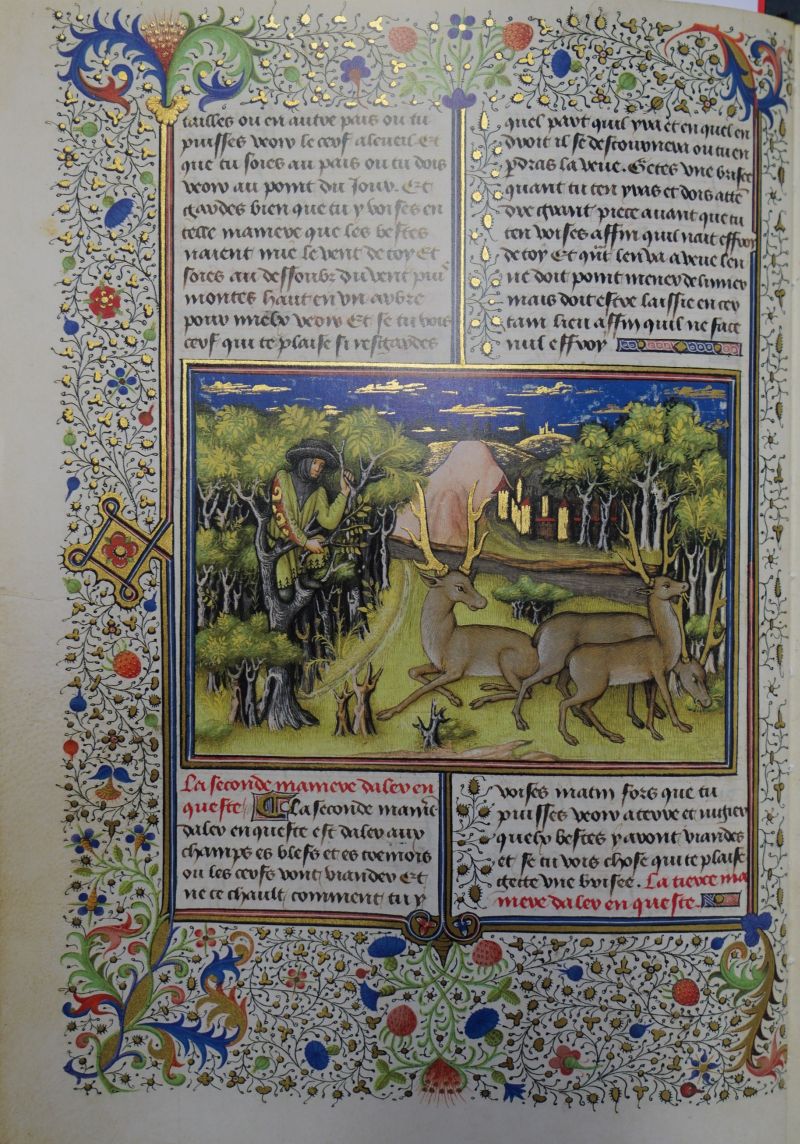 tailles ou en autre pais ou tu
puisses veoir le cerf a lueil Et
que tu soies au pais ou tu dois
veoir au point du Jour. Et
gardes bien que tu y voises en
telle maniere que les bestes
naient mie le vent de toy Et
soies au dessoubz du vent puis
montes hault en un arbre
pour mielx veoir Et se tu vois
cerf qui te plaise si resgardes
quel part quil yra et en quel en
droit il se destournera ou tu en
perdras la veue. Getes une brisee
quant tu ten yras et dois atten
dre grant piece auant que tu
ten voises affin quil nait effroy
de toy Et qñt len va a veue len
ne doit point mener de limier
mais doit estre laissie en cer
tain lieu affin quil ne face
nul effroy
La seconde maniere daler en
queste
La seconde manie
daler en queste est daler aux
champs es blefs et es tremois
ou les cerfs vont viander Et
ne te chault comment tu y
voises matin fors que tu
puisses veoir a terre et iugier
quelx bestes y auront viandes
et se tu vois chose qui te plaise
gette une brisee. La tierce ma
niere daler en queste.